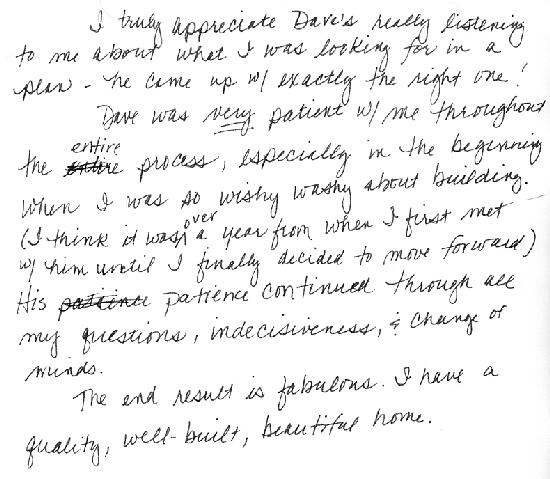 I truly appreciate Dave's really listening
to me about what I was looking for in a
plan - he came up w/ exactly the right one!
Dave was very patient w/ me throughout
the entire process, especially in the beginning
when I was so wishy washy about building.
(I think it was over a year from when I first met
w/ him until I finally decided to move forward)
His patience continued through all
my questions, indecisiveness, & change of
minds.
The end result is fabulous. I have a
quality, well-built, beautiful home.